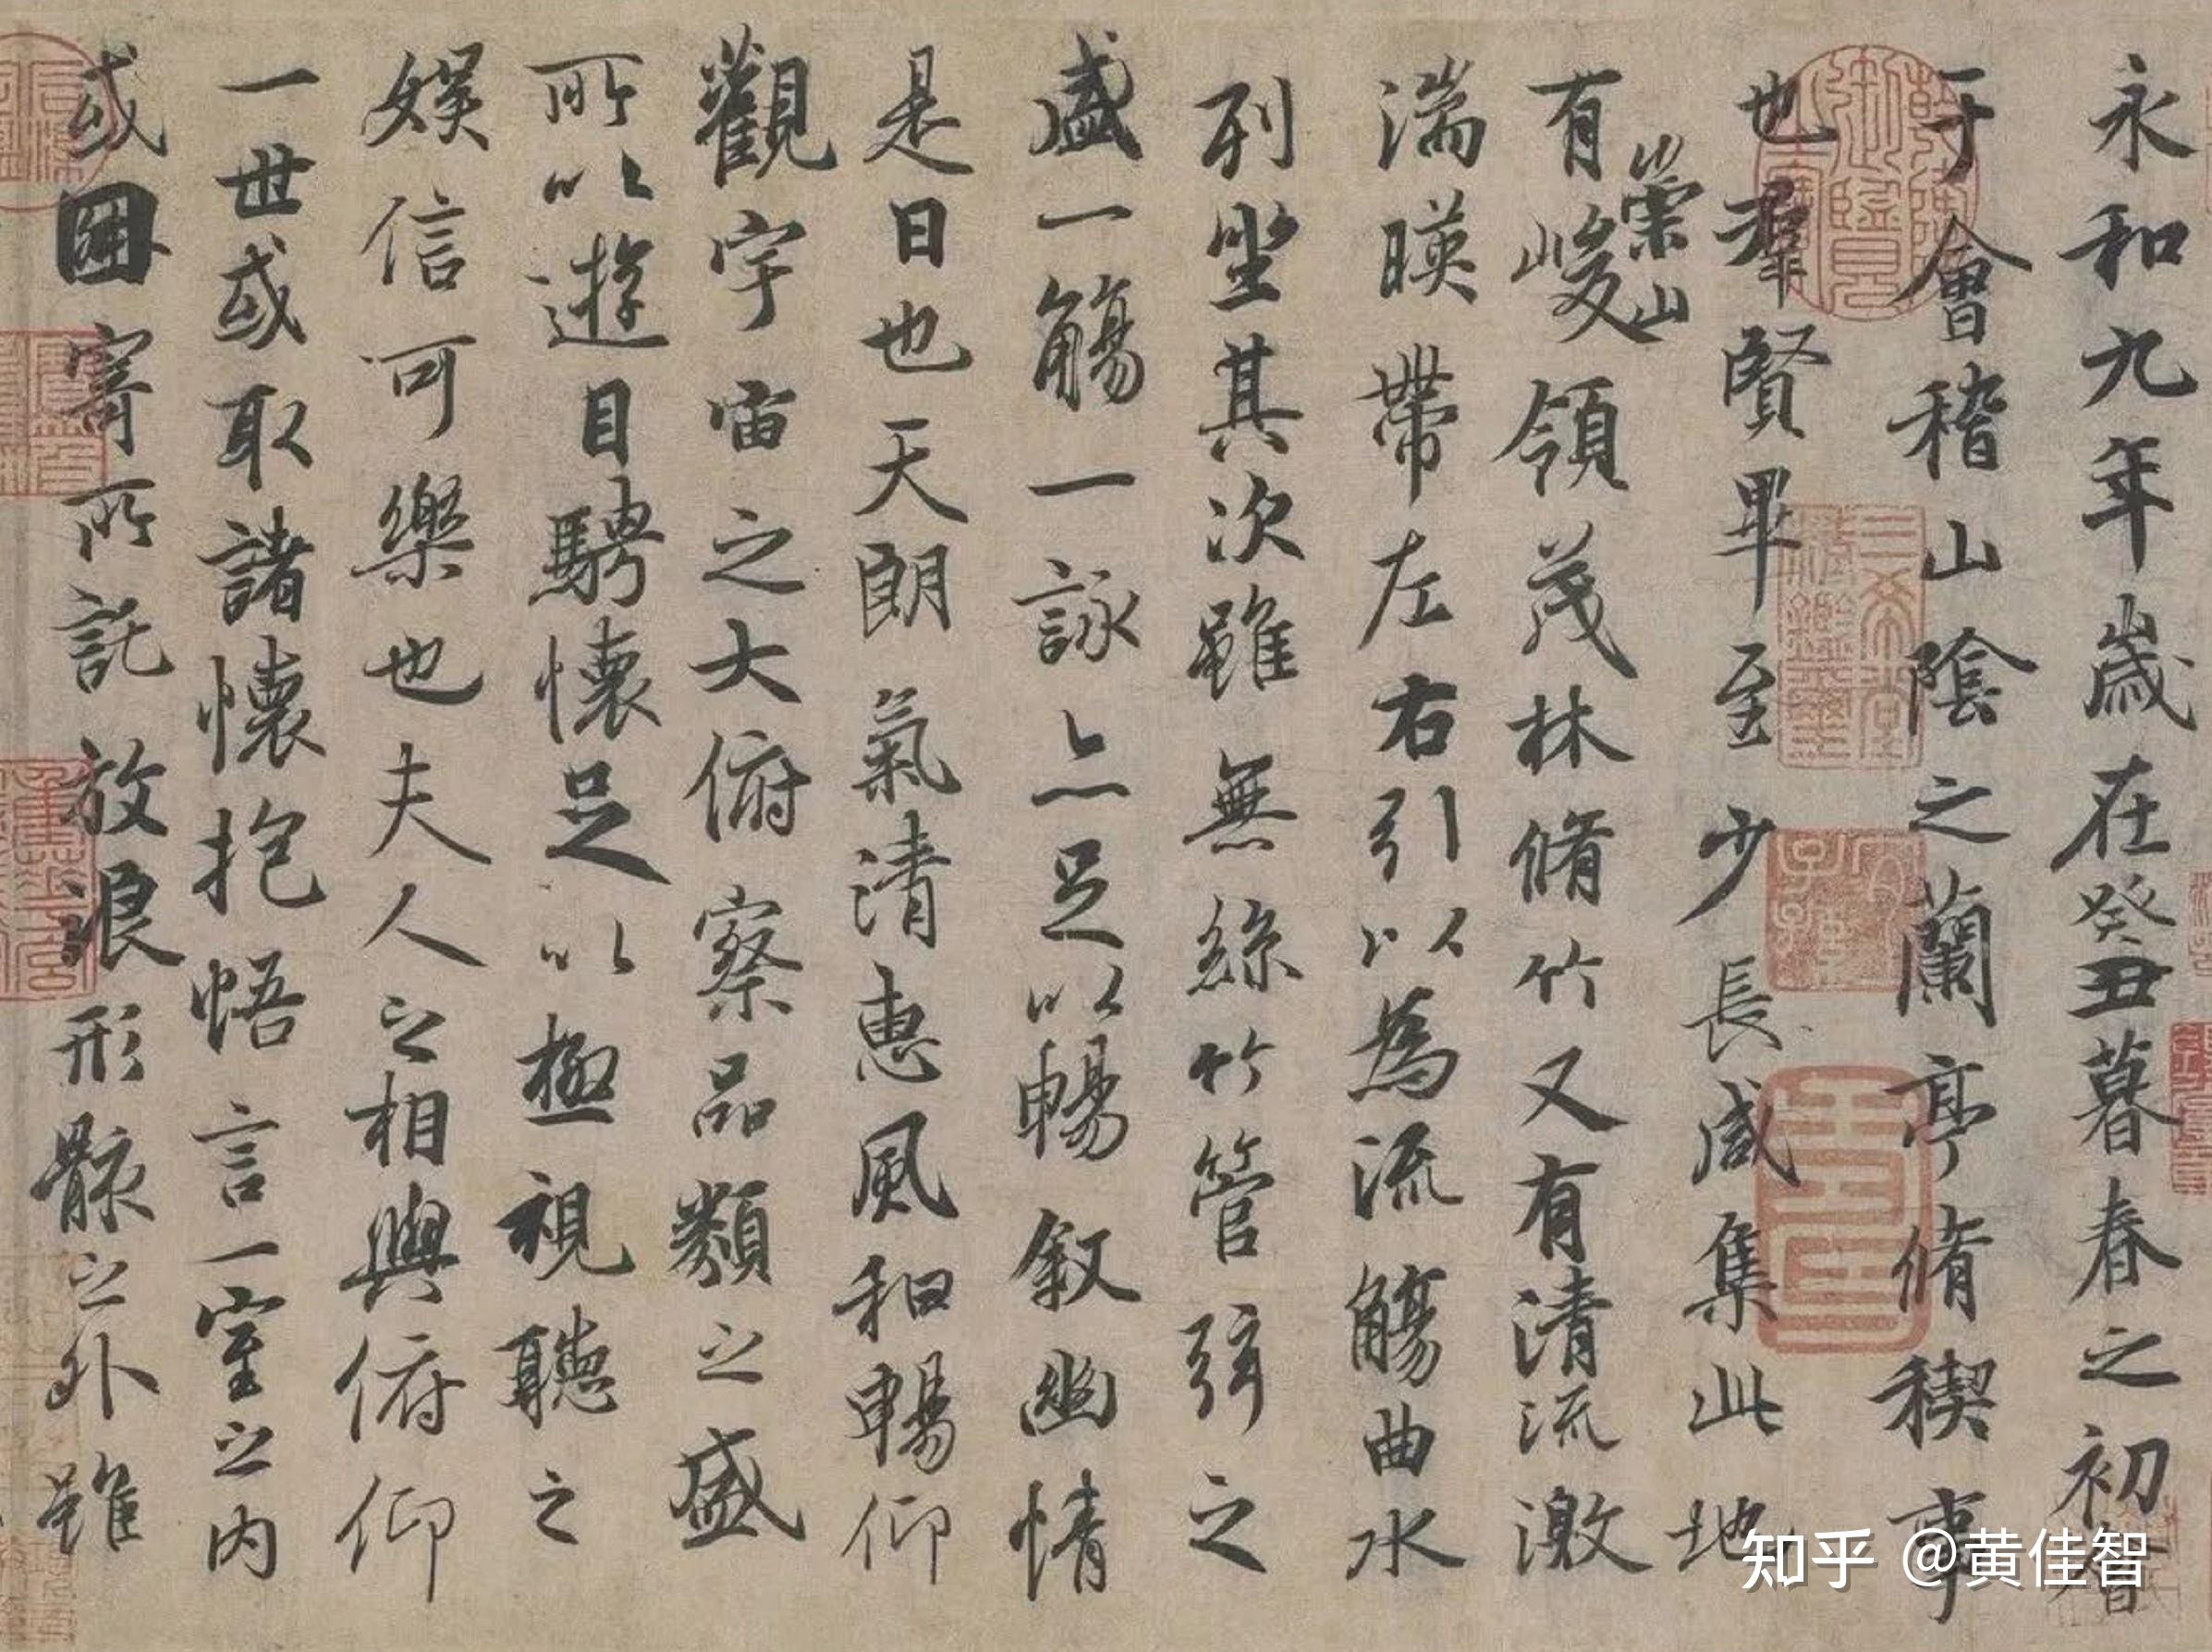 永和九年歲在癸丑暮春之初會
于會稽山陰之蘭亭脩稧事
也羣賢畢至少長咸集此地
有崇山峻領茂林脩竹又有清流激
湍暎帶左右引以為流觴曲水
列坐其次雖無絲竹管弦之
盛一觴一詠亦足以暢敘幽情
是日也天朗氣清惠風和暢仰
觀宇宙之大俯察品類之盛
所以遊目騁懷足以極視聽之
娛信可樂也夫人之相與俯仰
一世或取諸懷抱悟言一室之內
或因寄所託放浪形骸之外雖
三希堂精鑑璽
宜子孫
知乎 @黄佳智